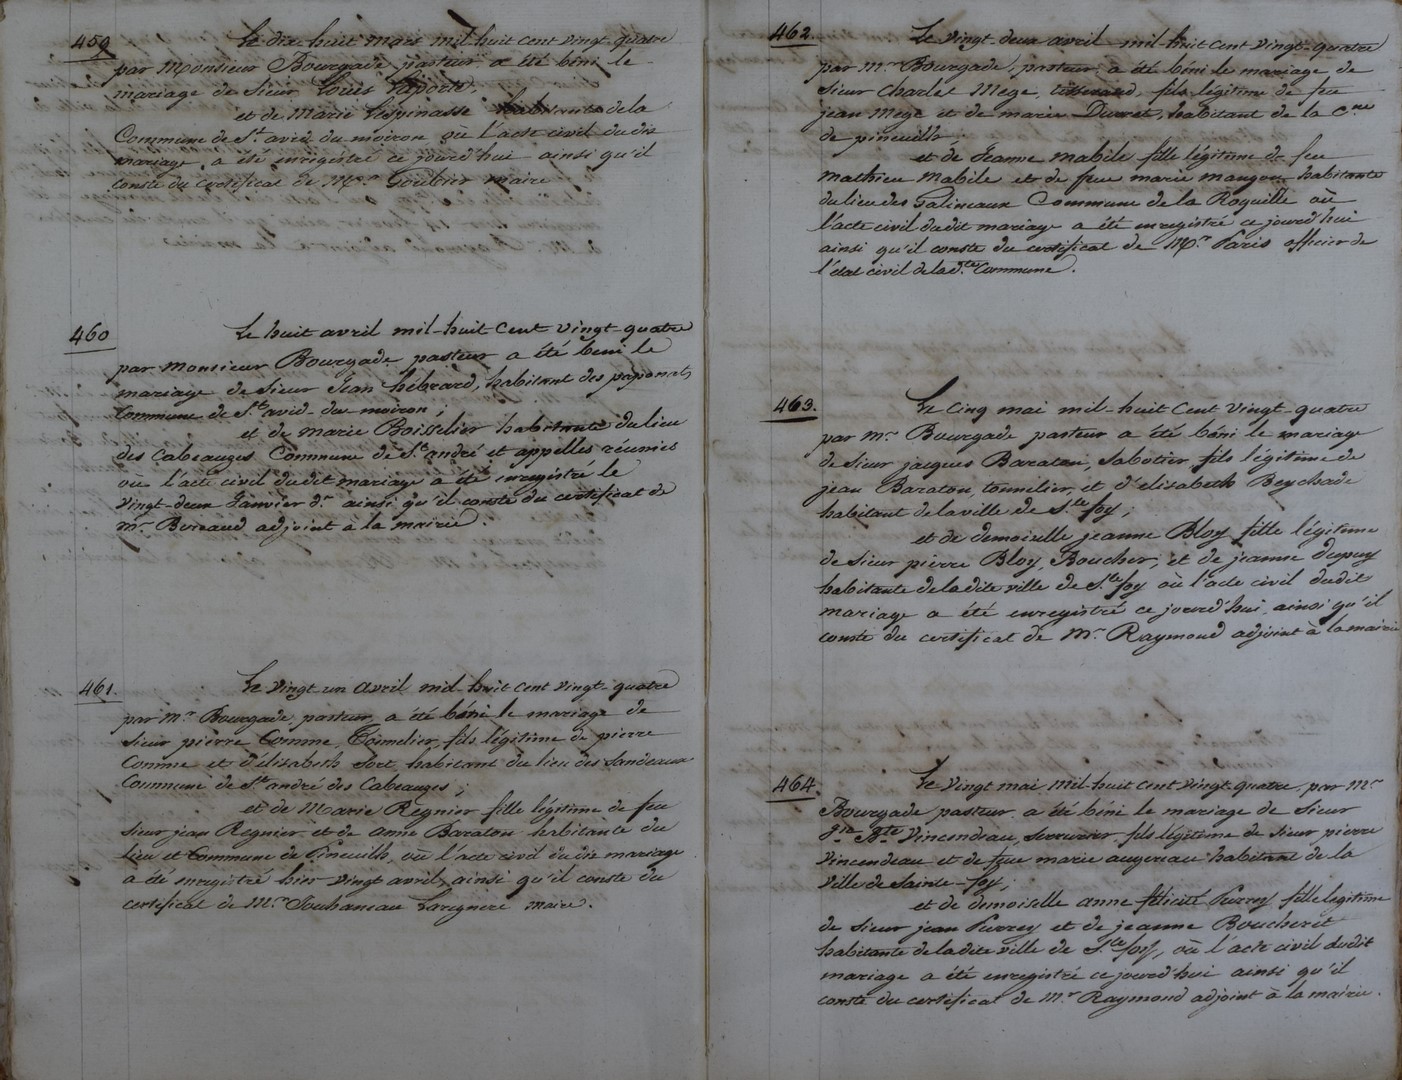 459
Le dix huit mars mil huit cent vingt-quatre
par Monsieur Bourgade pasteur a été béni le
mariage de Sieur Louis Laporte,
et de Marie Lespinasse habitants de la
Commune de St. avid du moiron où l'acte civil du dit
mariage a été enrigistré ce jourd'hui ainsi qu'il
conste du certificat de Mr. maire
460
Le huit avril mil-huit Cent vingt-quatre
par Monsieur Bourgade pasteur a été beni le
mariage de Sieur Jean hébrard, habitant des paponats
Commune de St. avid-du moiron;
et de marie Boisselier habitante du lieu
des Cabeauzes Commune de St. andré et appelles réunies
où l'acte civil dudit mariage a été enregistré le
vingt-deux Janvier dr. ainsi qu'il conste du certificat de
mr. Bureaud adjoint à la mairie.
461.
Le vingt un avril mil-huit cent vingt-quatre
par mr. Bourgade, pasteur, a été béni le mariage de
Sieur pierre Comme, Tonnelier, fils légitime de pierre
Comme et d'élisabeth Sort, habitant du lieu des Sandeaux
Commune de St. andré des Cabeauzes;
et de Marie Regnier fille légitime de feu
Sieur jean Regnier et de anne Baraton habitante du
lieu et Commune de Pineuilh, où l'acte civil du dit mariage
a été enregistré hier vingt avril, ainsi qu'il conste du
certificat de Mr. Jouhaneau Laregnere maire.
462
Le vingt-deux avril mil huit cent vingt-quatre
par mr. Bourgade, pasteur, a été béni le mariage de
Sieur Charles Mege, tisserand, fils légitime de feu
jean Mege et de marie Durret, habitant de la Cne
de pineuilh;
et de Jeanne mabile fille légitime de feu
Mathieu Mabile et de feue marie mangon habitante
du lieu des Galineaux Commune de la Roquille où
l'acte civil dudit mariage a été enregistré ce jourd'hui
ainsi qu'il conste du certificat de Mr. Paris officier de
l'état civil de la dte. Commune.
463.
Le Cinq mai mil-huit Cent vingt-quatre
par mr. Bourgade pasteur a été béni le mariage
de Sieur jacques Baraton, Sabotier, fils légitime de
jean Baraton, tonnilier, et d'elizabeth Beychade
habitant de la ville de Ste. foy;
et de demoiselle jeanne Bloy fille légitime
de Sieur pierre Bloy, Boucher, et de jeanne Dupuy
habitante de la dite ville de Ste. foy où l'acte civil dudit
mariage a été enregistré ce jourd'hui, ainsi qu'il
conste du certificat de Mr. Raymond adjoint à la mairie
464.
Le vingt mai mil-huit cent vingt-quatre par Mr.
Bourgade pasteur a été béni le mariage de Sieur
Bte. Vincendeau, Serrurier, fils légitime de Sieur pierre
Vincendeau et de feue marie augereau habitant de la
ville de Sainte-foy;
et de demoiselle anne félicité Purrey, fille légitime
de Sieur jean Purrey et de jeanne Boucheret
habitante de la dite ville de Ste. foy, où l'acte civil dudit
mariage a été enregistré ce jourd'hui ainsi qu'il
conste du certificat de Mr. Raymond adjoint à la mairie.